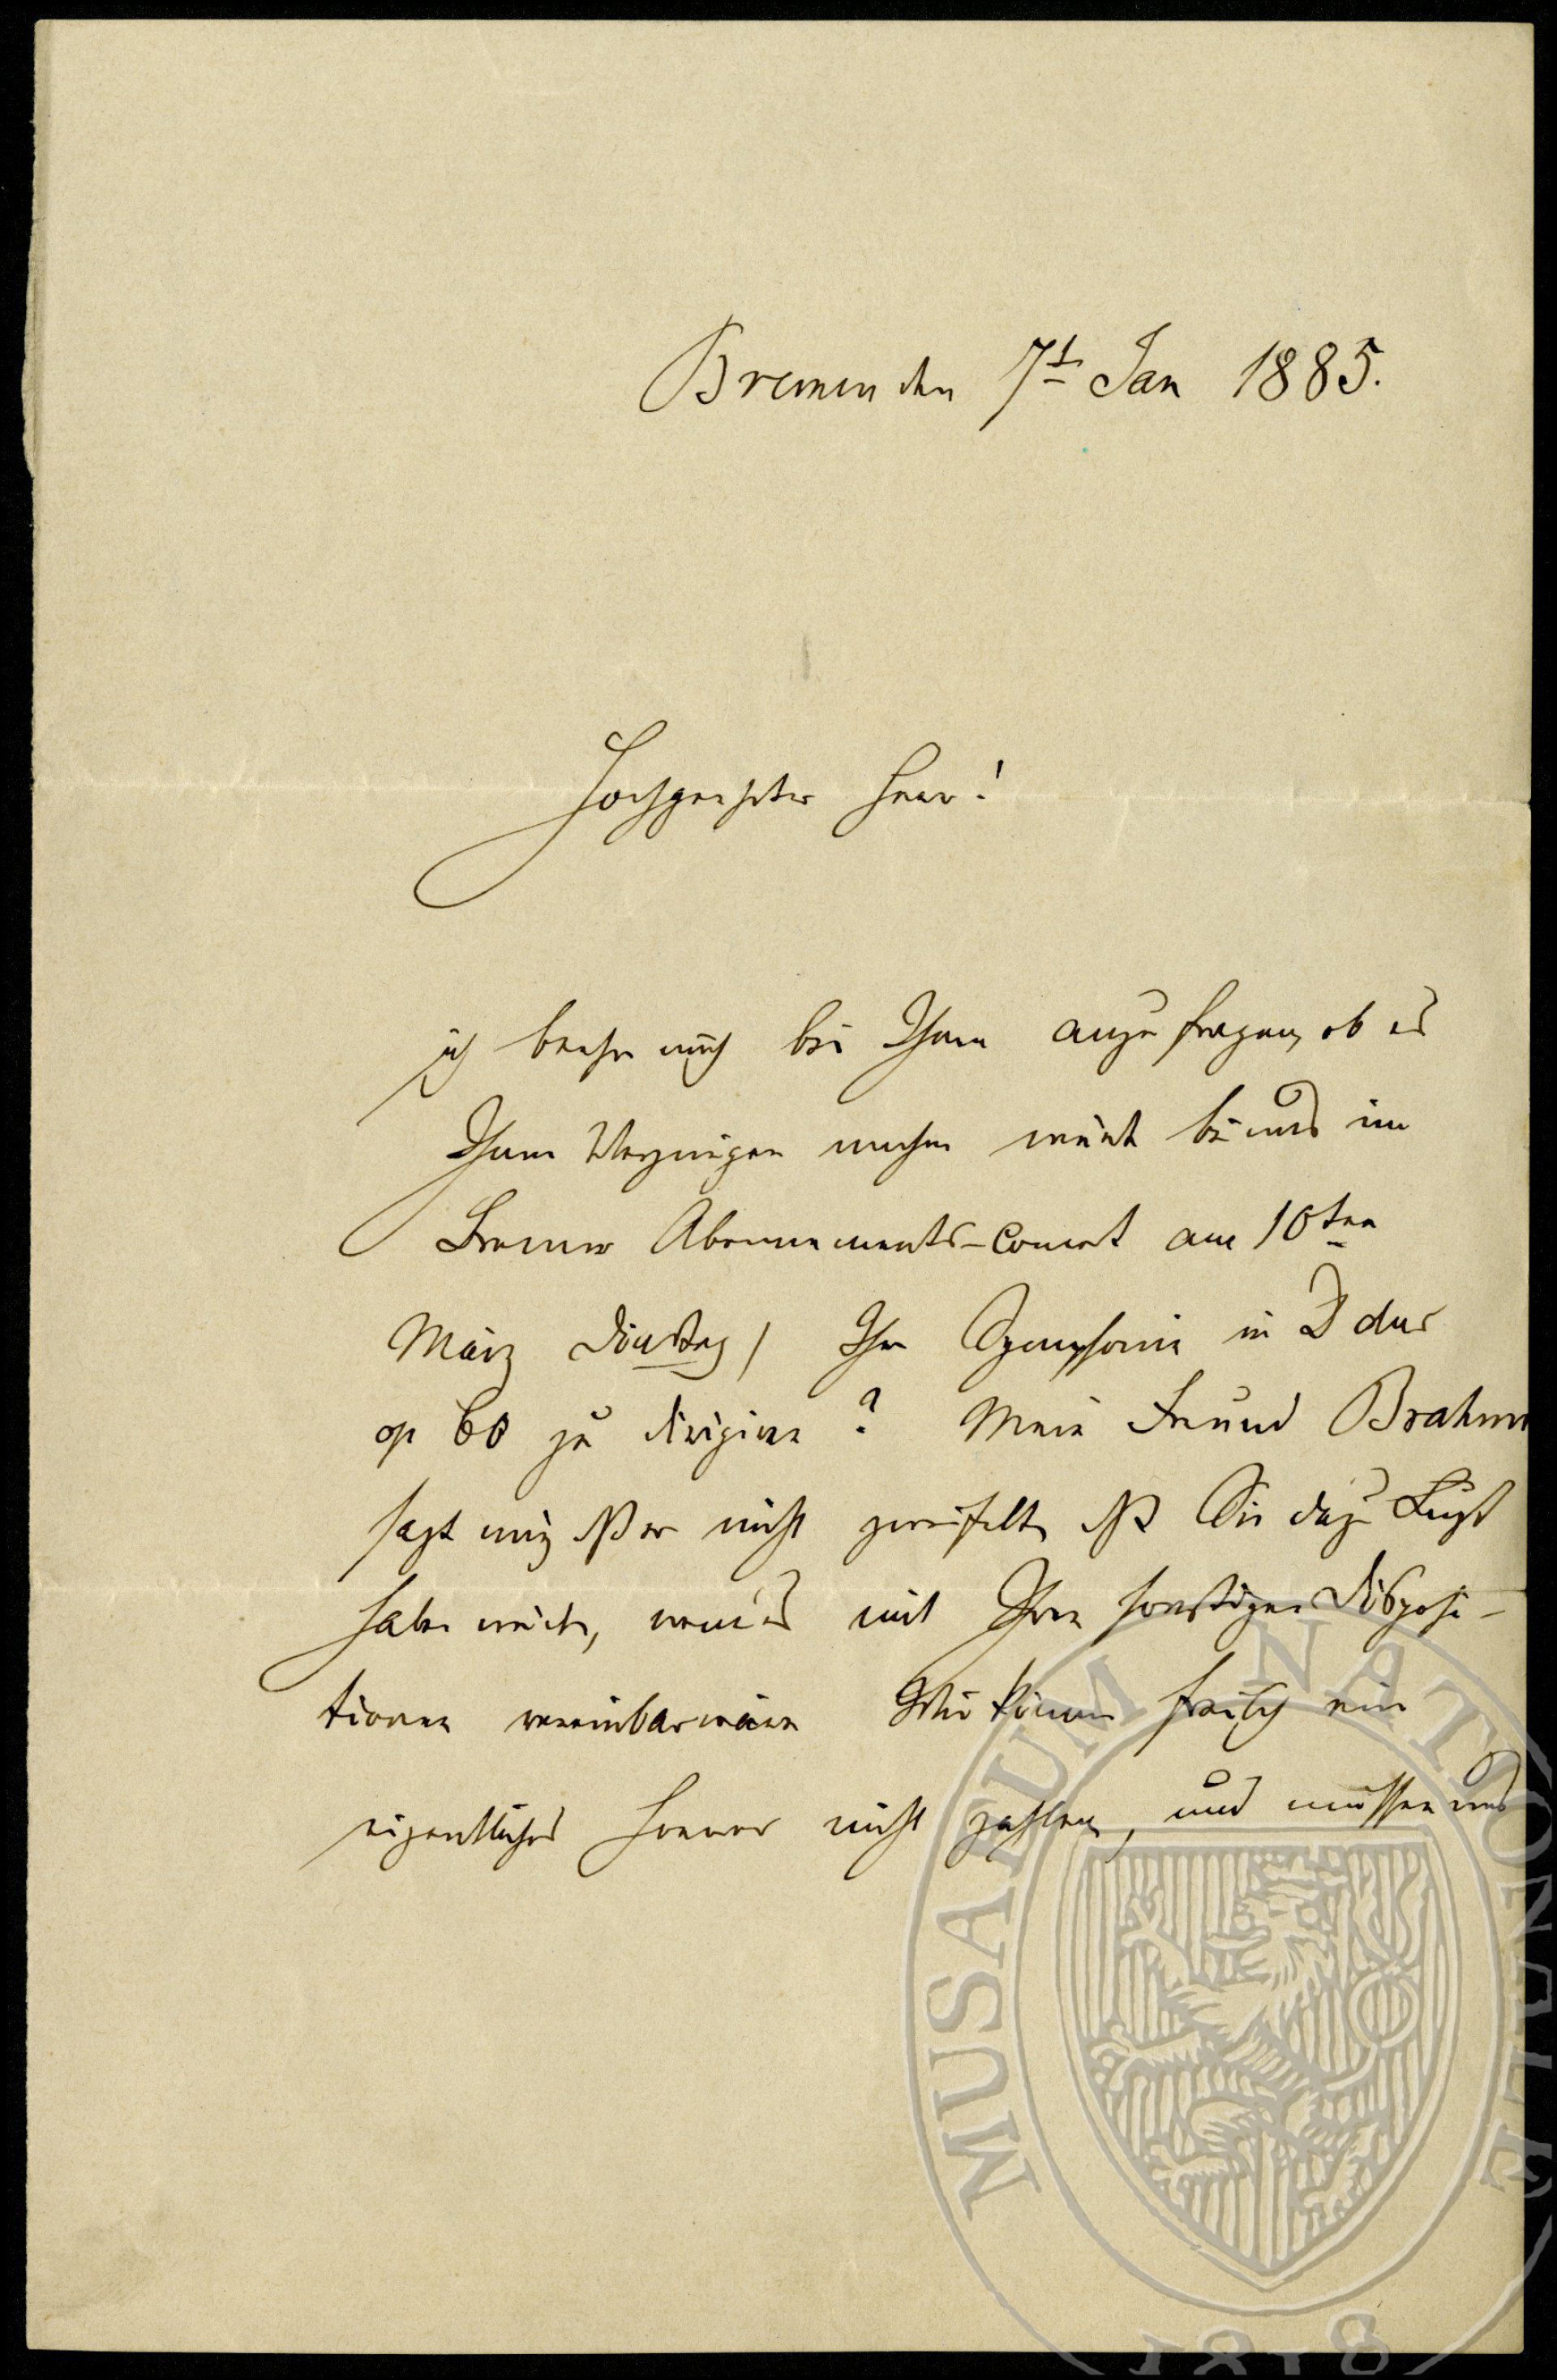 Bremen den 7t Jan 1885.
Hochgeehrter Herr!
ich beehre mich bei Ihnen anzufragen, ob es
Ihnen Vergnügen machen würde bei uns im
Bremer Abonnements-Concert am 10ten
März Dienstag / Ihre Symphonie in D dur
op 60 zu dirigiren? Mein Freund Brahms
sagt mir, daß er nicht zweifelt, daß Sie dazu Lust
haben würden, wenn es mit Ihren sonstigen Disposi-
tionen vereinbar wäre Wir können freilich ein
eigentliches Honorar nicht zahlen, und müssen uns
MUSAEUM NATIONALE
1818